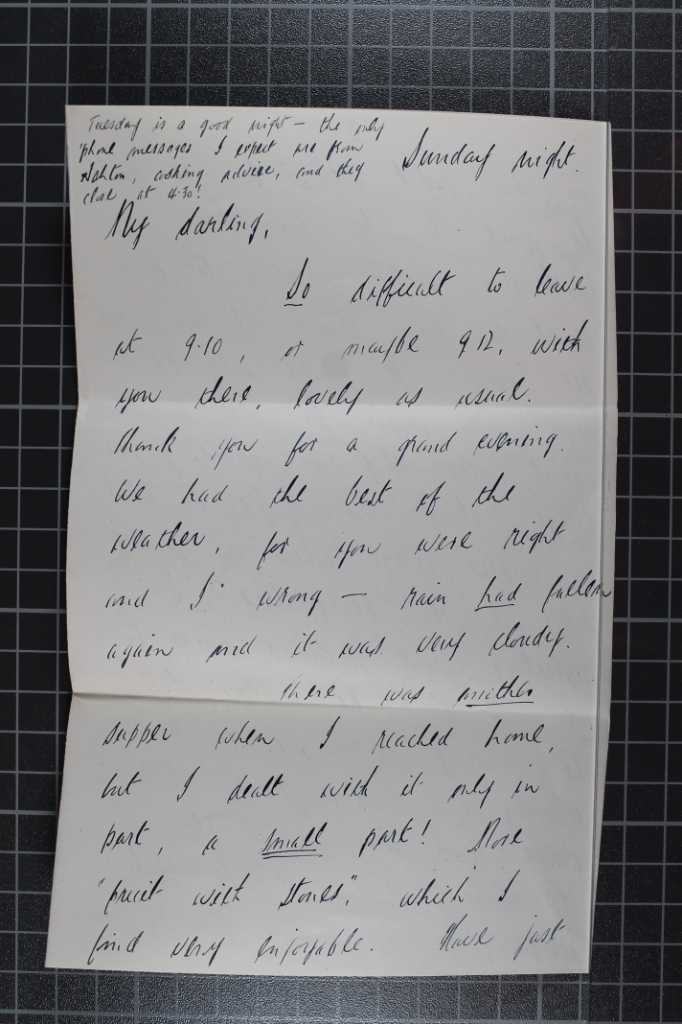 Tuesday is a good night — the only
'phone messages I expect are from
Ashton, asking advice, and they
close at 4.30!
Sunday night.
My darling,
So difficult to leave
at 9.10, or maybe 9.12, with
you there, lovely as usual.
Thank you for a grand evening.
We had the best of the
weather, for you were right
and I wrong — rain had fallen
again and it was very cloudy.
There was another
supper when I reached home,
but I dealt with it only in
part, a small part! More
"fruit with stones", which I
find very enjoyable. Have just